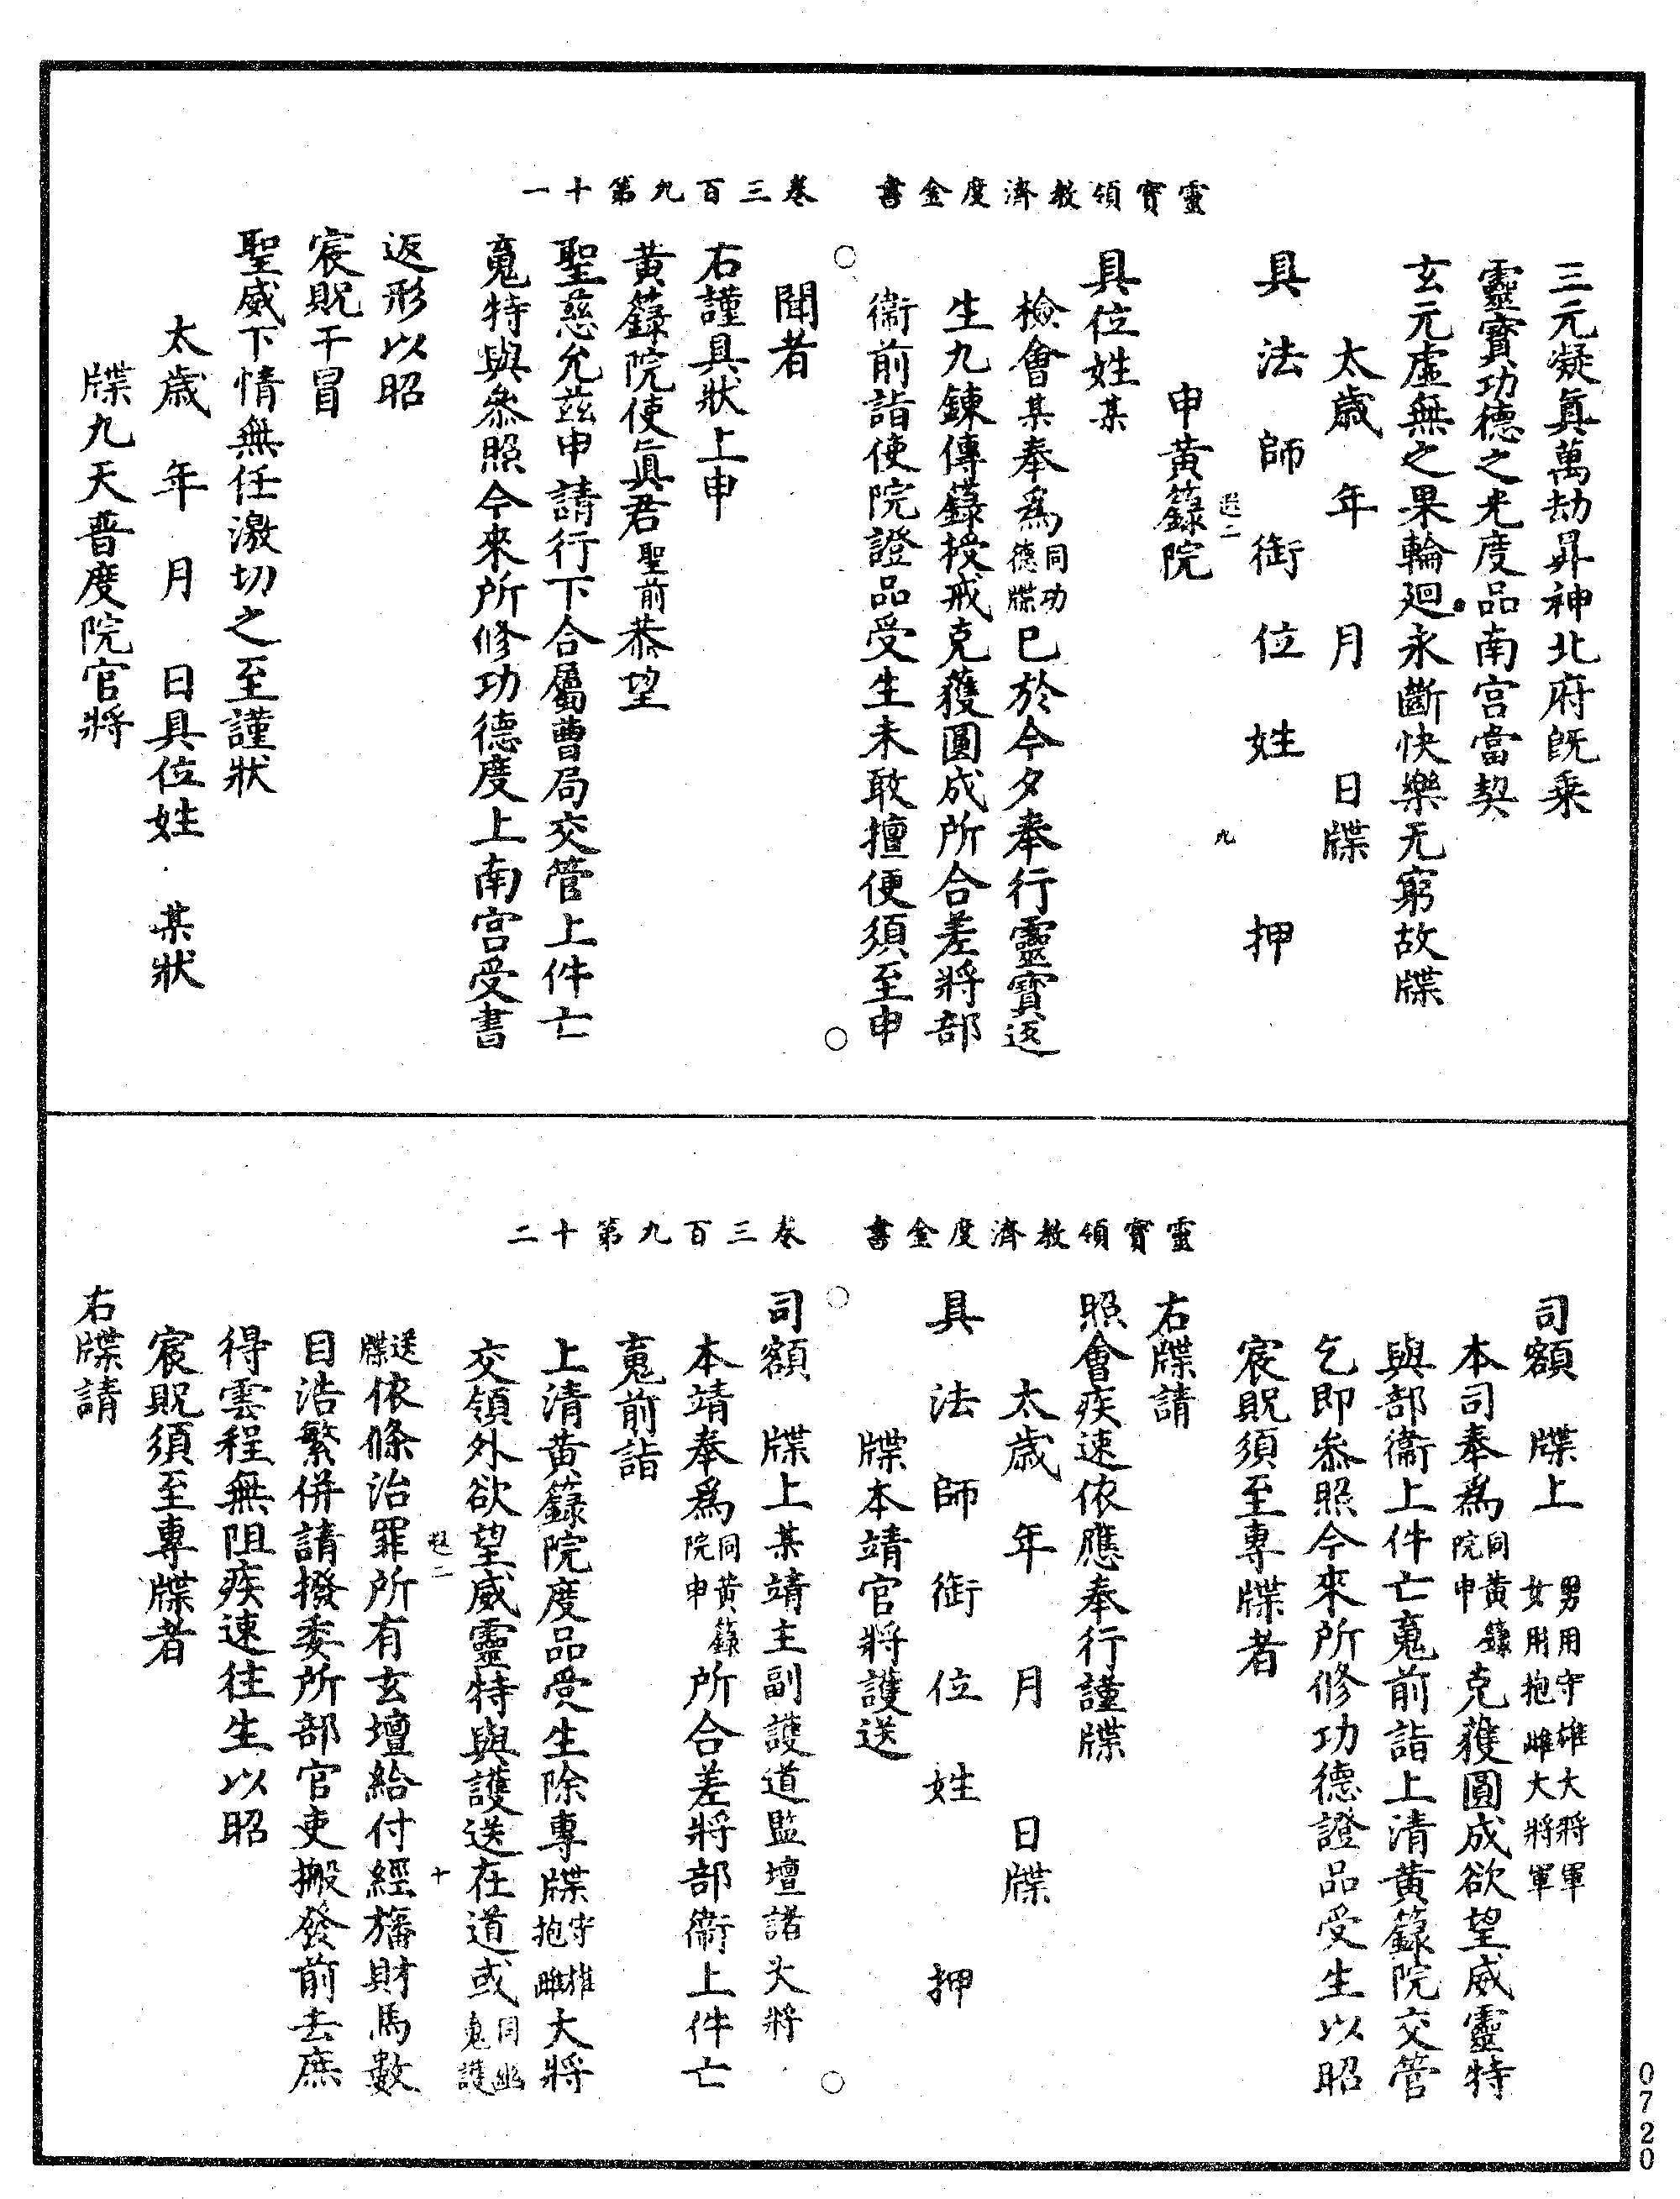 靈寶領教濟度金書　卷三百九第十一
三元凝真萬劫昇神北府旣乘
靈寶功德之光度品南宫當契
玄元虛無之果輪廻永斷快樂无窮故牒
太歲　年　月　日牒
具法師銜位姓押
遐二　九
申黃籙院
具位姓某
檢會某奉爲同功德牒巳於今夕奉行靈寶返
生九鍊傳籙授戒克獲圓成所合差將部
衞前詣使院證品受生未敢擅便須至申
聞者
右謹具狀上申
黃籙院使眞君聖前恭望
聖慈允兹申請行下合屬曹局交管上件亡
䰟特與叅照今來所修功德度上南宫受書
返形以昭
宸貺干冒
聖威下情無任激切之至謹狀
太歲　年　月　日具位姓某狀
牒九天普度院官將
靈寶領教濟度金書　卷三百九第十二
司額　牒上　男用守雄大將軍女用抱雌大將軍
本司奉爲同黃籙院申克獲圓成欲望威靈特
與部衞上件亡䰟前詣上清黃籙院交管
乞即叅照今來所修功德證品受生以昭
宸貺須至專牒者
右牒請
照會疾速依應奉行謹牒
太歲　年　月　日牒
具法師銜位姓押
牒本靖官將護送
司額　牒上某靖主副護道監壇諸大將
本靖奉爲同黃籙院申所合差將部衞上件亡
䰟前詣
上清黃籙院度品受生除專牒守雄抱雌大將
交領外欲望威靈特與護送在道或同幽䰟護
遐二　十
送牒依條治罪所有玄壇給付經旛財馬數
目浩繁併請撥委所部官吏搬發前去庶
得雲程無阻疾速往生以昭
宸貺須至專牒者
右牒請
0720